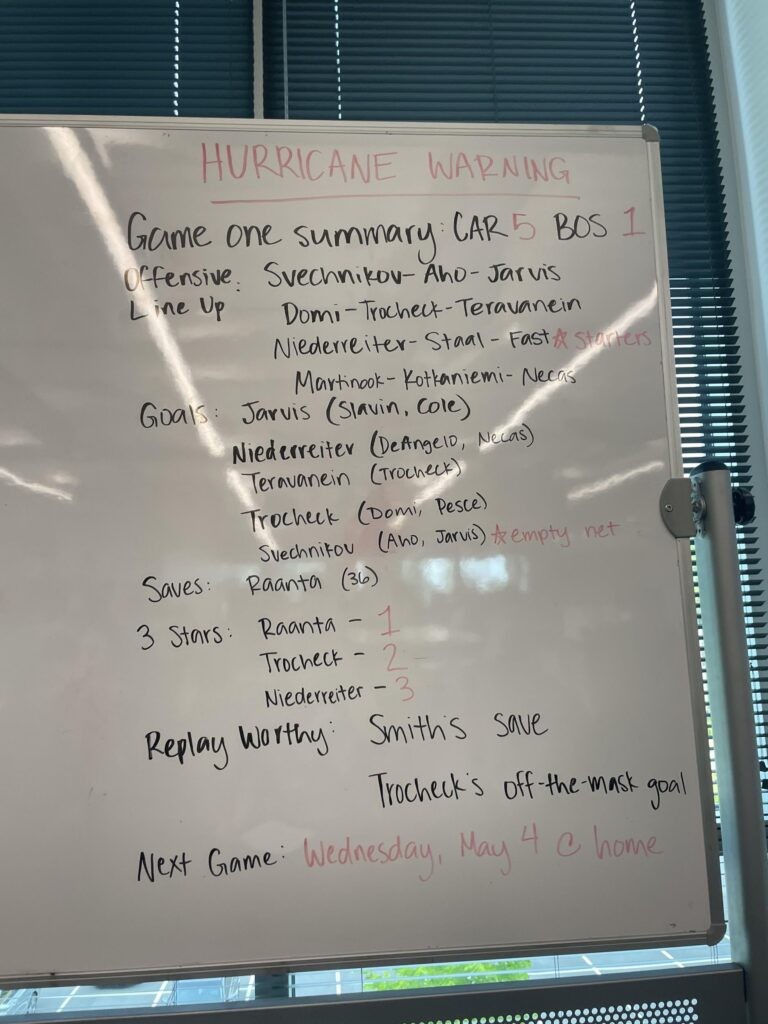 HURRICANE WARNING
Game one summary: CAR 5 BOS 1
Offensive: Svechnikov-Aho-Jarvis
Line Up Domi-Trocheck-Teravanein
Niederreiter-Staal-Fast ☆ starters
Martinook-Kotkaniemi-Necas
Goals: Jarvis (Slavin, Cole)
Niederreiter (DeAngelo, Necas)
Teravanein (Trocheck)
Trocheck (Domi, Pesce)
Svechnikov (Aho, Jarvis) ☆ empty net
Saves: Raanta (36)
3 Stars: Raanta - 1
Trocheck - 2
Niederreiter - 3
Replay Worthy: Smith's save
Trocheck's off-the-mask goal
Next Game: Wednesday, May 4 @ home